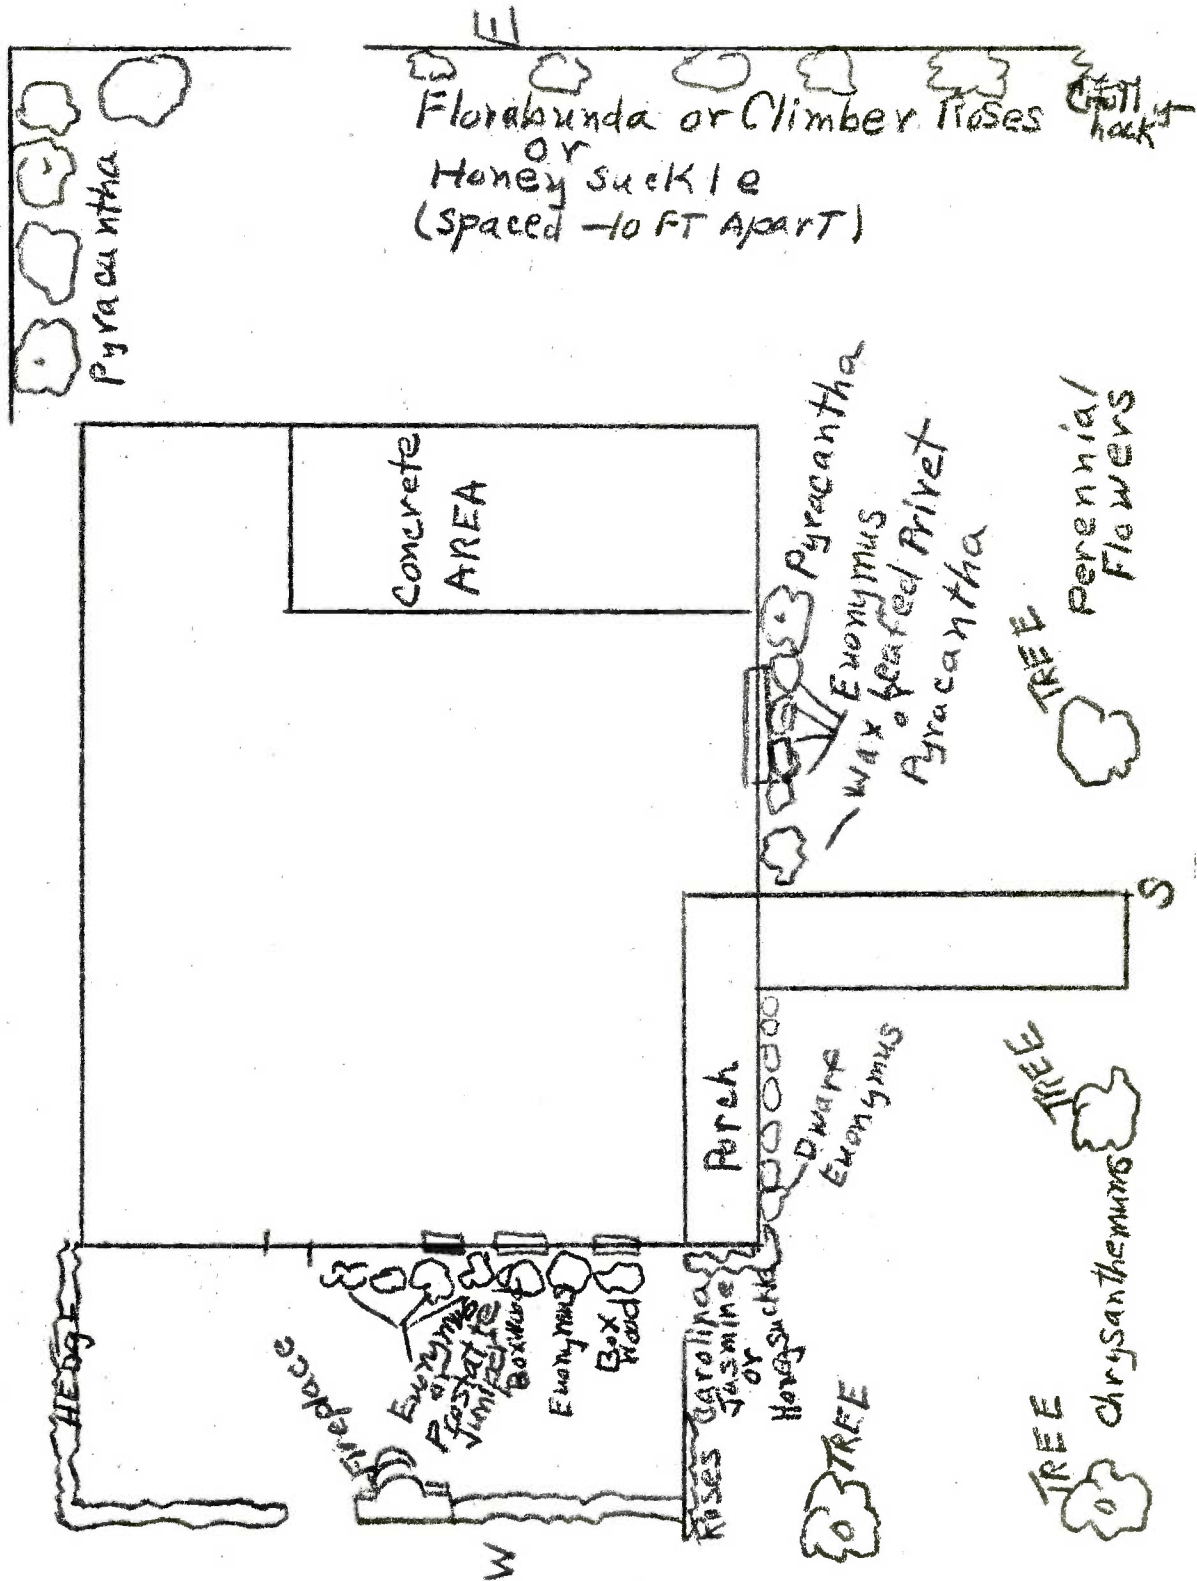 E
Florabunda or Climber Roses
or
Honey suckle
(spaced -10 FT Apart)
Pyracantha
Concrete
AREA
Pyracantha
Wax Euonymus
or Leafed Privet
Pyracantha
Perennial
Flowers
TREE
S
Porch
Dwarf
Euonymus
TREE
Chrysanthemums
TREE
TREE
HEdgE
Fireplace
Euonymus
or
Prostatte
Juniper
Boxwood
Euonymus
Box
Wood
Carolina
Jasmine
or
Honeysuckle
Roses
W